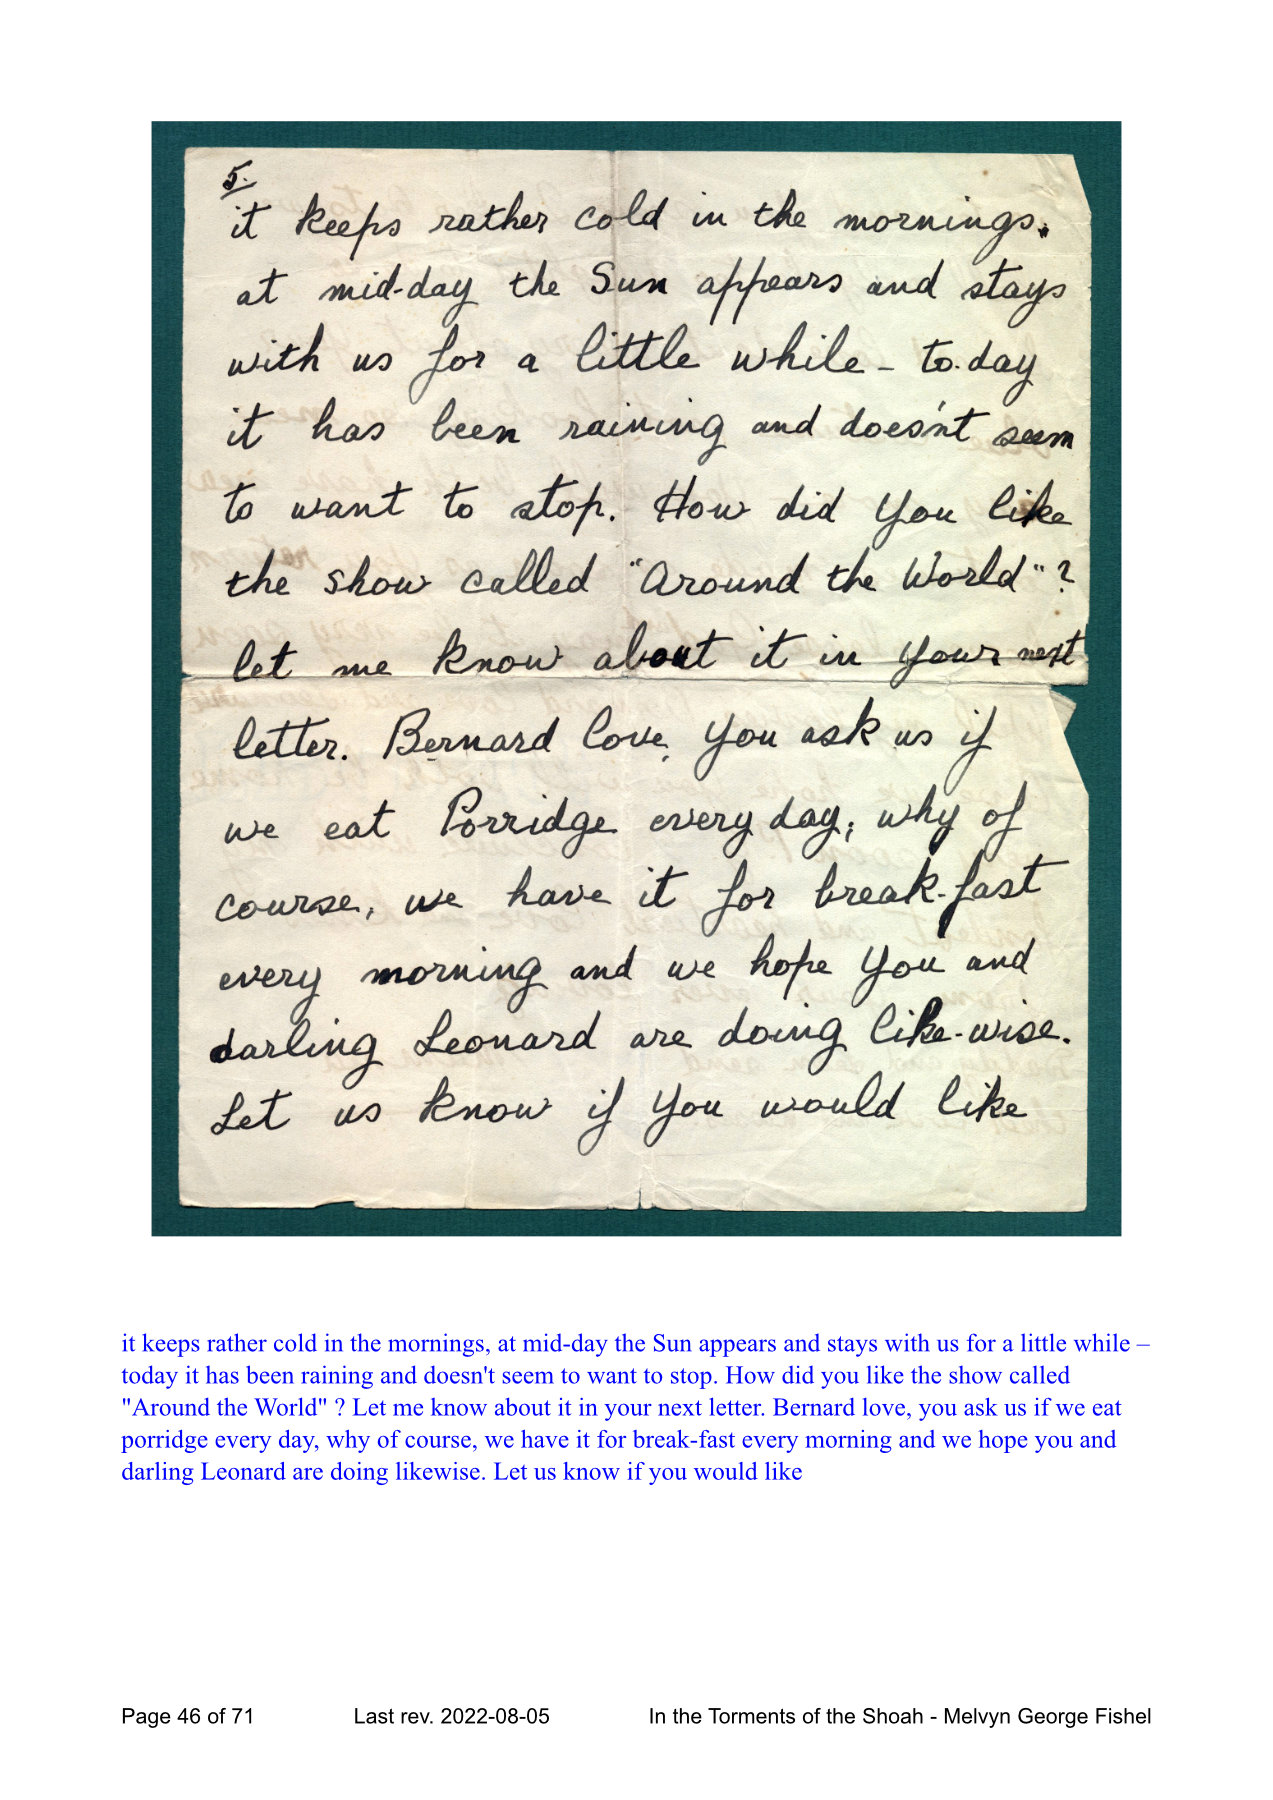 5.
it keeps rather cold in the mornings.
at mid-day the Sun appears and stays
with us for a little while - to-day
it has been raining and does'nt seem
to want to stop. How did you like
the show called "Around the World" ?
let me know about it in your next
letter. Bernard love, you ask us if
we eat Porridge every day; why of
course, we have it for break-fast
every morning and we hope you and
darling Leonard are doing like-wise.
Let us know if you would like
it keeps rather cold in the mornings, at mid-day the Sun appears and stays with us for a little while –
today it has been raining and doesn't seem to want to stop. How did you like the show called
"Around the World" ? Let me know about it in your next letter. Bernard love, you ask us if we eat
porridge every day, why of course, we have it for break-fast every morning and we hope you and
darling Leonard are doing likewise. Let us know if you would like
Page 46 of 71 Last rev. 2022-08-05 In the Torments of the Shoah - Melvyn George Fishel